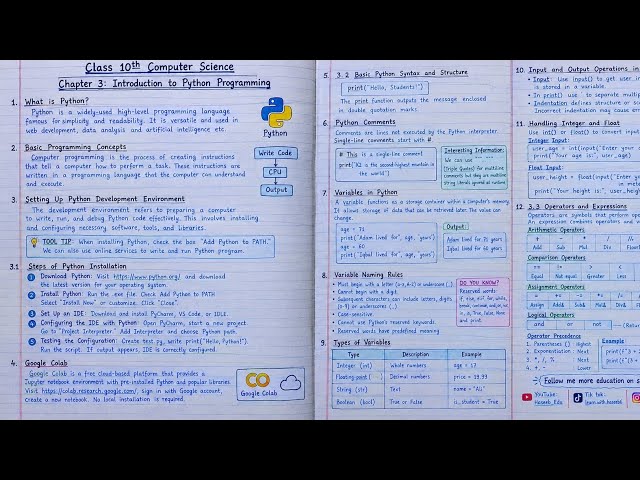 Class 10th Computer Science
Chapter 3: Introduction to Python Programming
1. What is Python?
Python is a widely-used high-level programming language
famous for simplicity and readability. It is versatile and used in
web development, data analysis and artificial intelligence etc.
Python
2. Basic Programming Concepts
Computer programming is the process of creating instructions
that tell a computer how to perform a task. These instructions are
written in a programming language that the computer can understand
and execute.
Write Code
CPU
Output
3. Setting Up Python Development Environment
The development environment refers to preparing a computer
to write, run, and debug Python code effectively. This involves installing
and configuring necessary software, tools, and libraries.
TOOL TIP: When installing Python, check the box "Add Python to PATH."
We can also use online services to write and run Python program.
3.1 Steps of Python Installation
1 Download Python: Visit https://www.python.org/ and download
the latest version for your operating system.
2 Install Python: Run the .exe file. Check Add Python to PATH
Select "Install Now" or customize. Click "Close"
3 Set Up an IDE: Download and install PyCharm, VS Code, or IDLE.
4 Configuring the IDE with Python: Open PyCharm, start a new project.
Go to "Project Interpreter." Add Interpreter and choose Python path.
5 Testing the Configuration: Create test.py, write print("Hello, Python!").
Run the script. If output appears, IDE is correctly configured.
4. Google Colab
Google Colab is a free cloud-based platform that provides a
Jupyter notebook environment with pre-installed Python and popular libraries.
Visit https://colab.research.google.com/, sign in with Google account,
create a new notebook. No local installation is required.
Google Colab
5. 3.2 Basic Python Syntax and Structure
print("Hello, Students!")
The print function outputs the message enclosed
in double quotation marks.
6. Python Comments
Comments are lines not executed by the Python interpreter.
Single-line comments start with #.
# This is a single-line comment
print("K2 is the second-highest mountain in
the world")
Interesting Information:
We can use
(triple quotes) for multiline
comments but they are multiline
string literals ignored at runtime.
7. Variables in Python
A variable functions as a storage container within a Computer's memory.
It allows storage of data that can be retrieved later. The value can
change.
age = 71
print("Adam lived for", age, "years")
age = 60
print("Iqbal lived for", age, "years")
Output:
Adam lived for 71 years
Iqbal lived for 60 years
8. Variable Naming Rules
• Must begin with a letter (a-z, A-Z) or underscore (_).
• Cannot begin with a digit.
• Subsequent characters can include letters, digits
(0-9) or underscores (_).
• Case-sensitive.
• Cannot use Python's reserved keywords.
• Reserved words have predefined meaning
DO YOU KNOW?
Reserved words:
if, else, elif, for, while,
break, continue, and, or, not,
in, is, True, False, None
and print.
9. Types of Variables
Type Description Example
Integer (int) Whole numbers age = 17
Floating-point Decimal numbers price = 19.99
String (str) Text name = "Ali"
Boolean (bool) True or False is_student = True
10. Input and Output Operations in
• Input: Use input() to get user in
is stored in a variable.
• In print() use to separate multip
• Indentation defines structure or sc
Incorrect indentation may cause err
11. Handling Integer and Float
Use int() or float() to convert input
Integer Input:
user_age = int(input("Enter y
print("Your age is", user_age)
Float Input:
user_height = float(input("Enter yo
in meter
print("Your height is", user_heigh
12. 3.3 Operators and Expressions
Operators are symbols that perform opera
An expression combines operators and
Arithmetic Operators
+ - * / //
Add Sub Mul Div Floor
Comparison Operators
== != > <
Equal Not equal Greater Less
Assignment Operators
= += -= *= /=
Assign Add& Sub& Mul& Div&
Logical Operators
and or not (Retur
Operator Precedence
1. Parentheses () Highest
2. Exponentiation Next
3. *, /, % Next
4. +, - Lower
Example
print(f"3 + 2
print(f"(3 +
Follow me more education on
YouTube:
Haseeb_Edu
Tik tok:
learn with haseeb